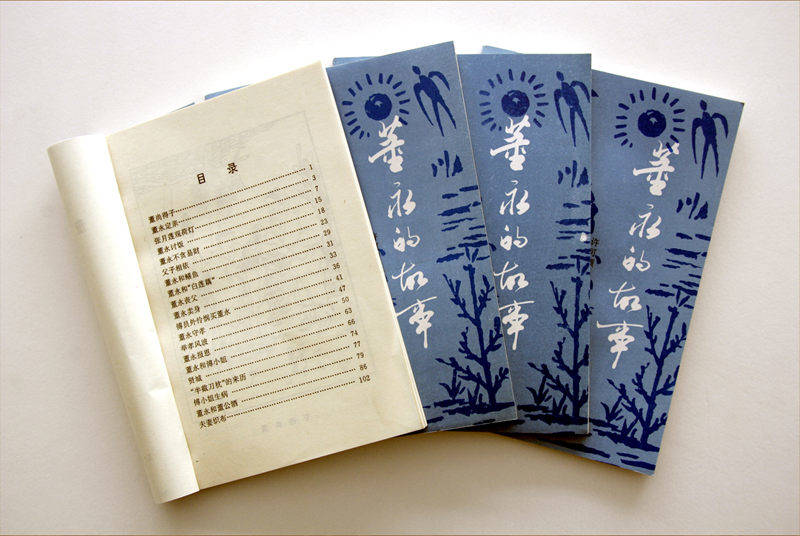 目 录
董尚得子 1
董永定亲 3
张月莲观荷灯 7
董永讨饭 15
董永不贪县财 18
父子相依 23
董永和鳝鱼 29
董永和“白莲藕” 31
董永丧父 33
董永卖身 36
傅员外怜悯买董永 41
董永守孝 47
举孝风波 50
董永报恩 63
董永和傅小姐 66
贤城 74
“半截刀杖”的来历 77
傅小姐生病 79
董永和董公酒 86
夫妻织布 102
董永的故事
董永的故事
董永的故事